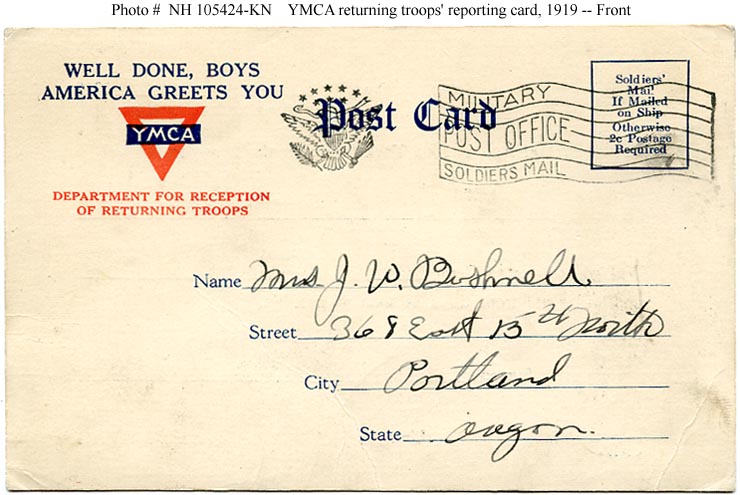 Photo # NH 105424-KN YMCA returning troops' reporting card, 1919 -- Front
WELL DONE, BOYS
AMERICA GREETS YOU
YMCA
DEPARTMENT FOR RECEPTION
OF RETURNING TROOPS
Post Card
MILITARY
POST OFFICE
SOLDIERS MAIL
Soldiers'
Mail
If Mailed
on Ship
Otherwise
2c Postage
Required
Name Mrs J. W. Bushnell
Street 368 East 15th North
City Portland
State Oregon.